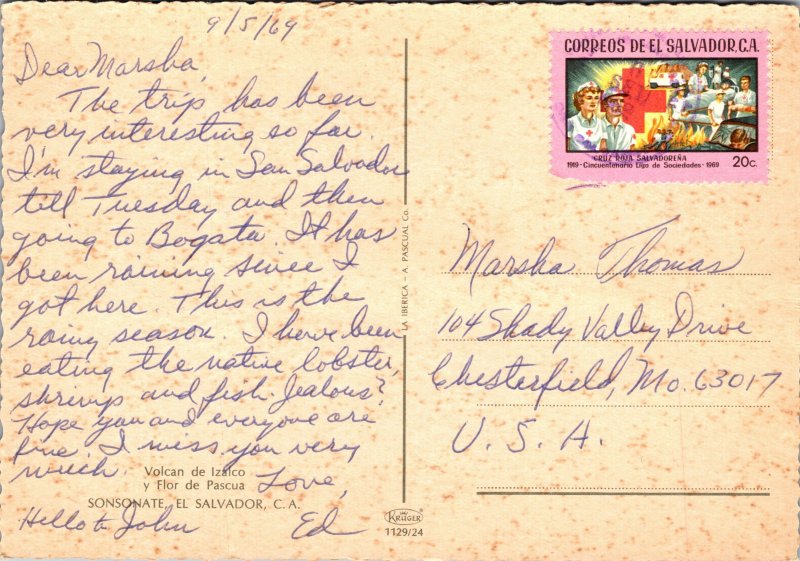 9/5/69
Dear Marsha,
The trip has been
very interesting so far.
I'm staying in San Salvador
till Tuesday and then
going to Bogata. It has
been raining since I
got here. This is the
rainy season. I have been
eating the native lobster,
shrimp and fish. Jealous?
Hope you and everyone are
fine. I miss you very
much.
Love,
Hello to John
Ed
Volcan de Izalco
y Flor de Pascua
SONSONATE, EL SALVADOR, C. A.
LA IBERICA - A. PASCUAL Co.
KRÜGER
1129/24
CORREOS DE EL SALVADOR, C.A.
CRUZ ROJA SALVADOREÑA
1919 - Cincuentenario Liga de Sociedades - 1969
20c.
Marsha Thomas
104 Shady Valley Drive
Chesterfield, Mo. 63017
U. S. A.